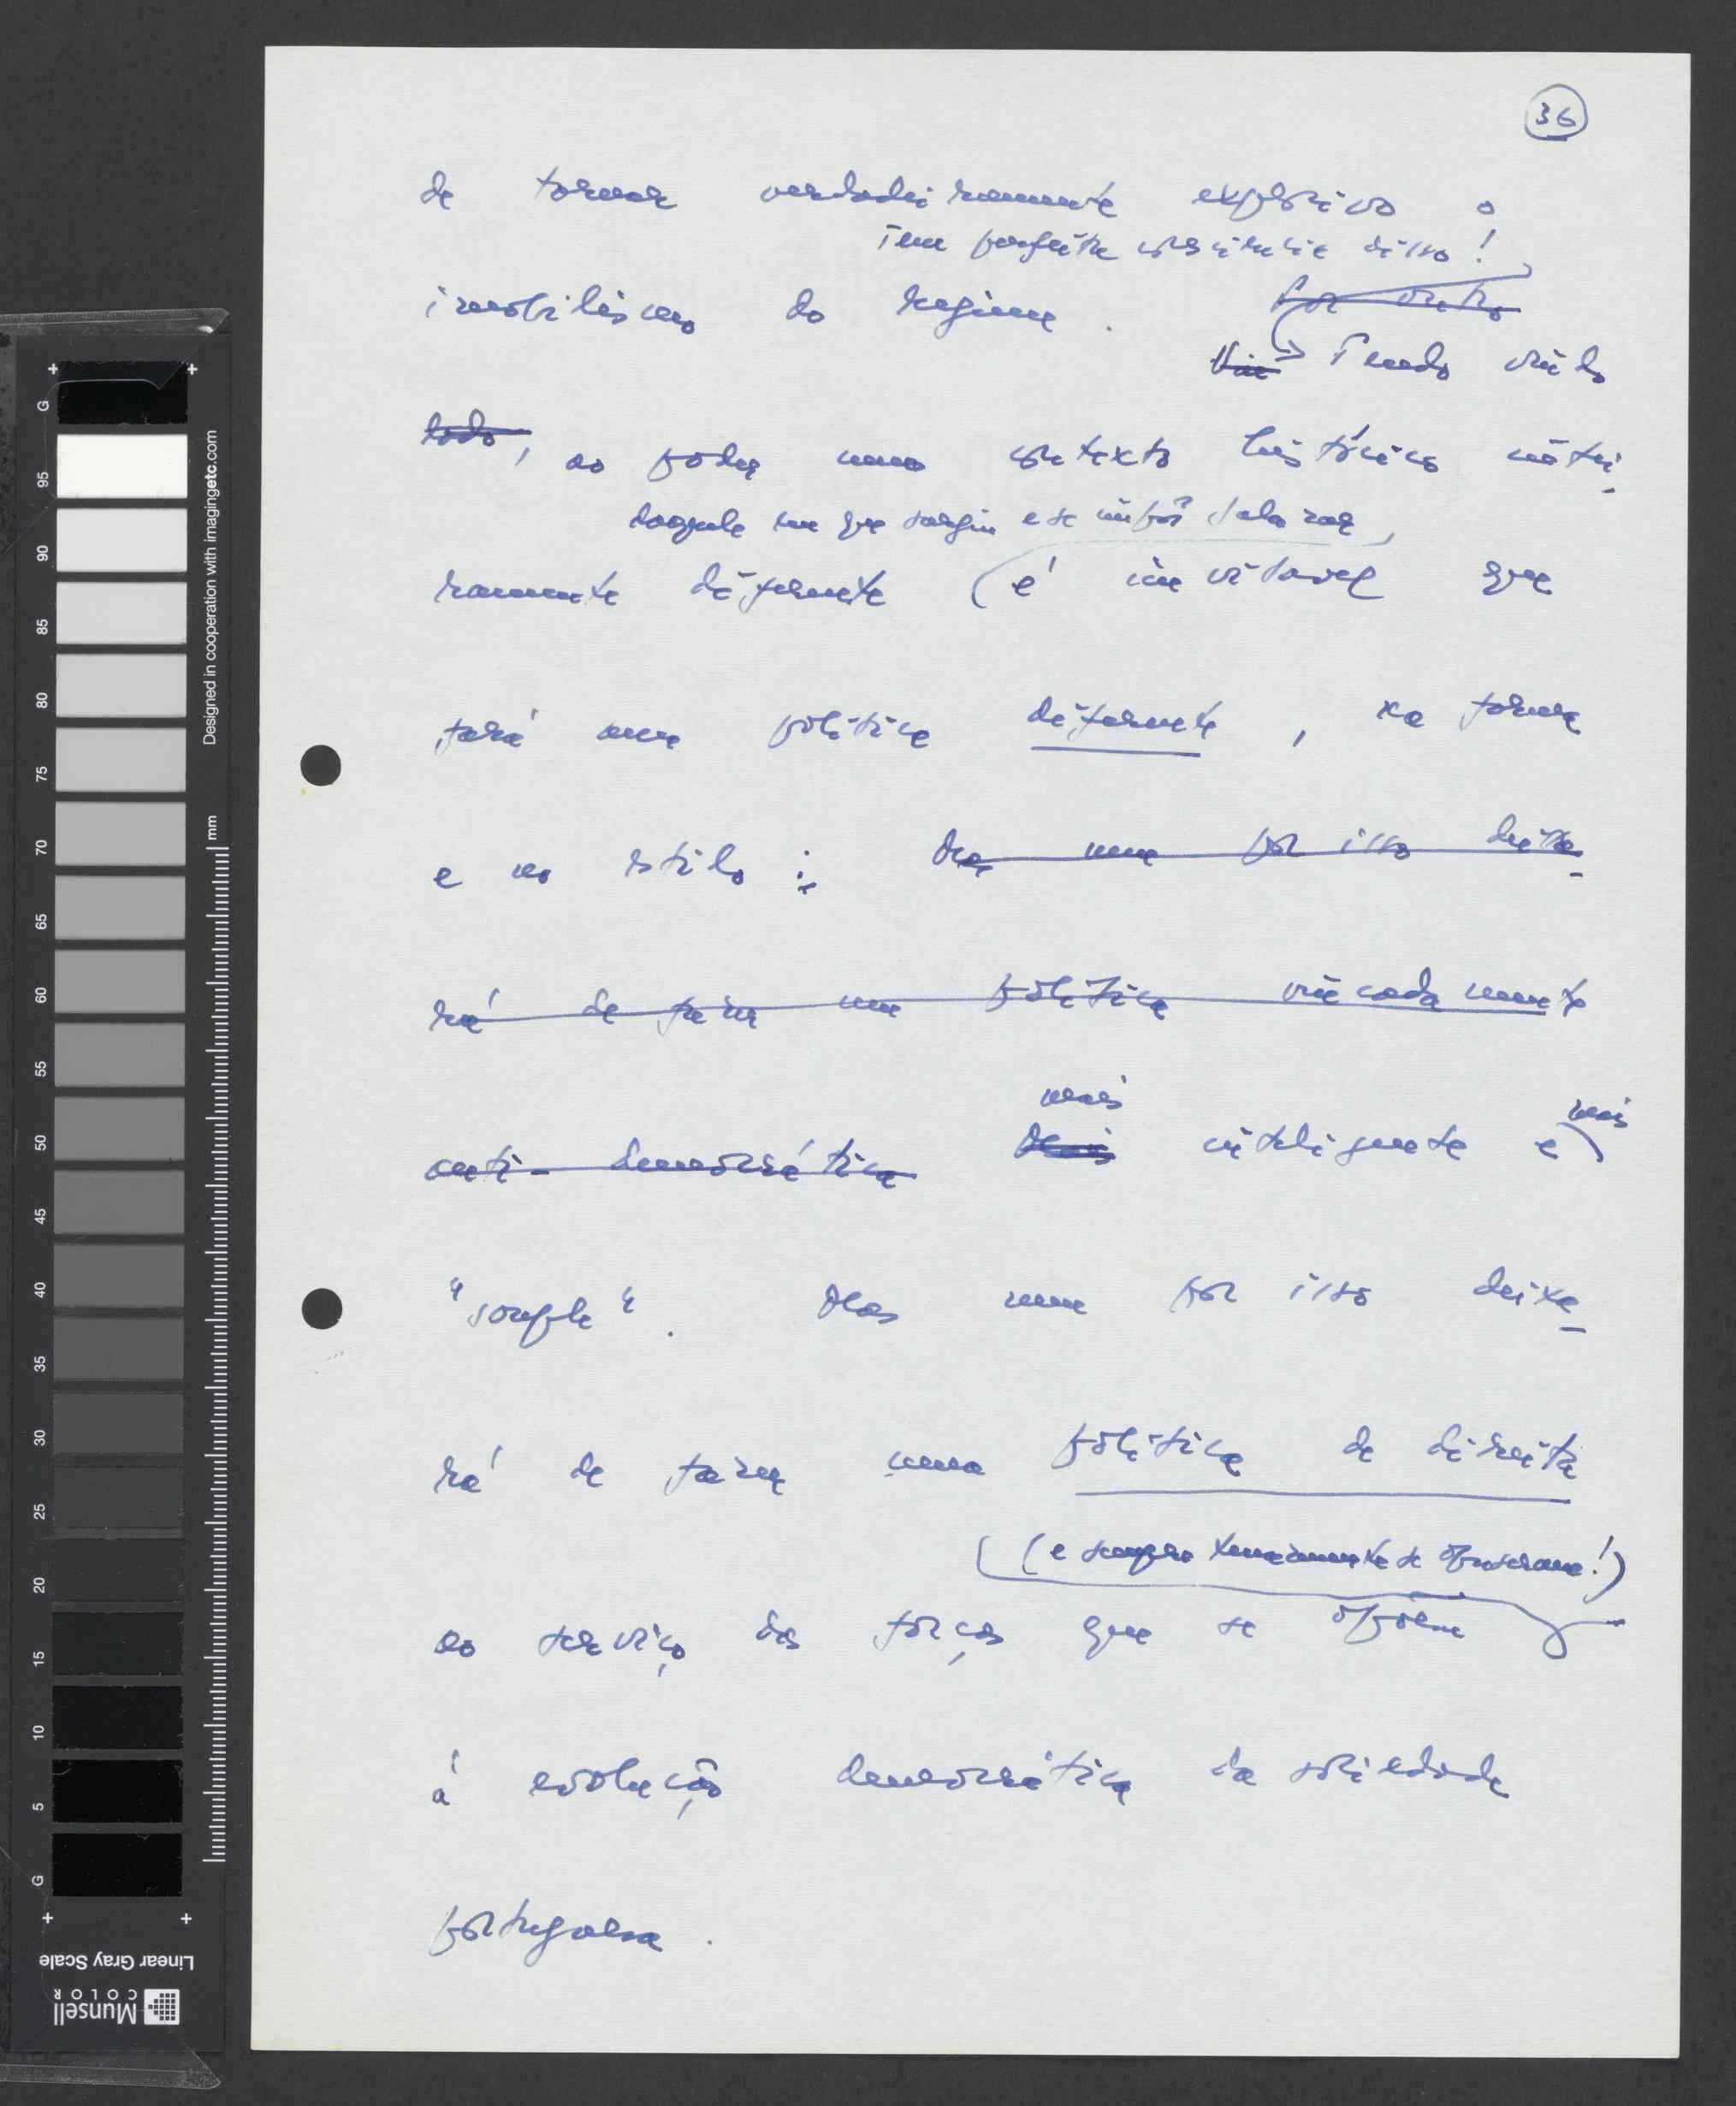 36
de tornar verdadeiramente explosivo o
Tem perfeita consciência disso!
imobilismo do regime. Por outro
Vin Tendo vindo
lado, ao poder num contexto histórico intei-
daquele em que surgiu e se impôs Salazar,
ramente diferente é inevitável que
fará uma política diferente, na forma
e no estilo: Mas nem por isso deixa-
rá de fazer uma política vincadamente
mais mais
anti-democrática Mais inteligente e
"souple". Mas nem por isso deixa-
rá de fazer uma política de direita
(e sempre tenazmente se opuseram!)
ao serviço das forças que se opõem
à evolução democrática da sociedade
portuguesa.
G 95 90 85 80 75 70 65 60 55 50 45 40 35 30 25 20 15 10 5 G
mm
Designed in cooperation with imagingetc.com
Linear Gray Scale
Munsell
COLOR